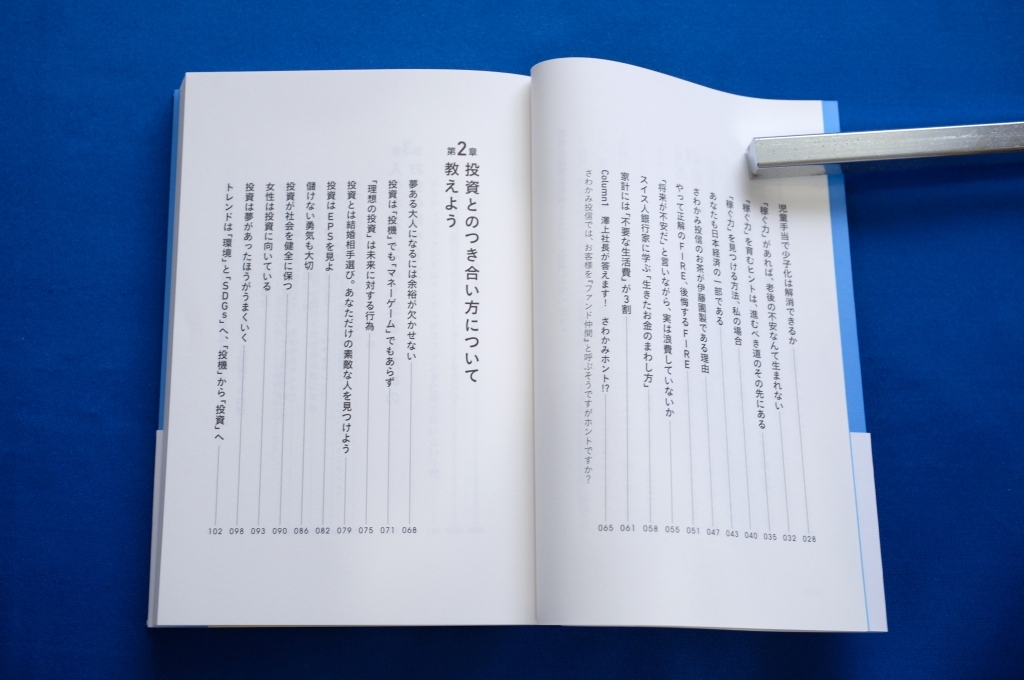 児童手当で少子化は解消できるか 028
「稼ぐ力」があれば、老後の不安なんて生まれない 032
「稼ぐ力」を育むヒントは、進むべき道のその先にある 035
「稼ぐ力」を見つける方法、私の場合 040
あなたも日本経済の一部である 043
さわかみ投信のお茶が伊藤園製である理由 047
やって正解のFIRE、後悔するFIRE 051
「将来が不安だ」と言いながら、実は浪費していないか 055
スイス人銀行家に学ぶ「生きたお金のまわし方」 058
家計には「不要な生活費」が3割 061
Column1 澤上社長が答えます! さわかみホント!? 065
さわかみ投信では、お客様を『ファンド仲間』と呼ぶそうですがホントですか?
第2章 投資とのつき合い方について
教えよう
夢ある大人になるには余裕が欠かせない 068
投資は「投機」でも「マネーゲーム」でもあらず 071
「理想の投資」は未来に対する行為 075
投資とは結婚相手選び。あなただけの素敵な人を見つけよう 079
投資はEPSを見よ 082
儲けない勇気も大切 086
投資が社会を健全に保つ 090
女性は投資に向いている 093
投資は夢があったほうがうまくいく 098
トレンドは「環境」と「SDGs」へ、「投機」から「投資」へ 102